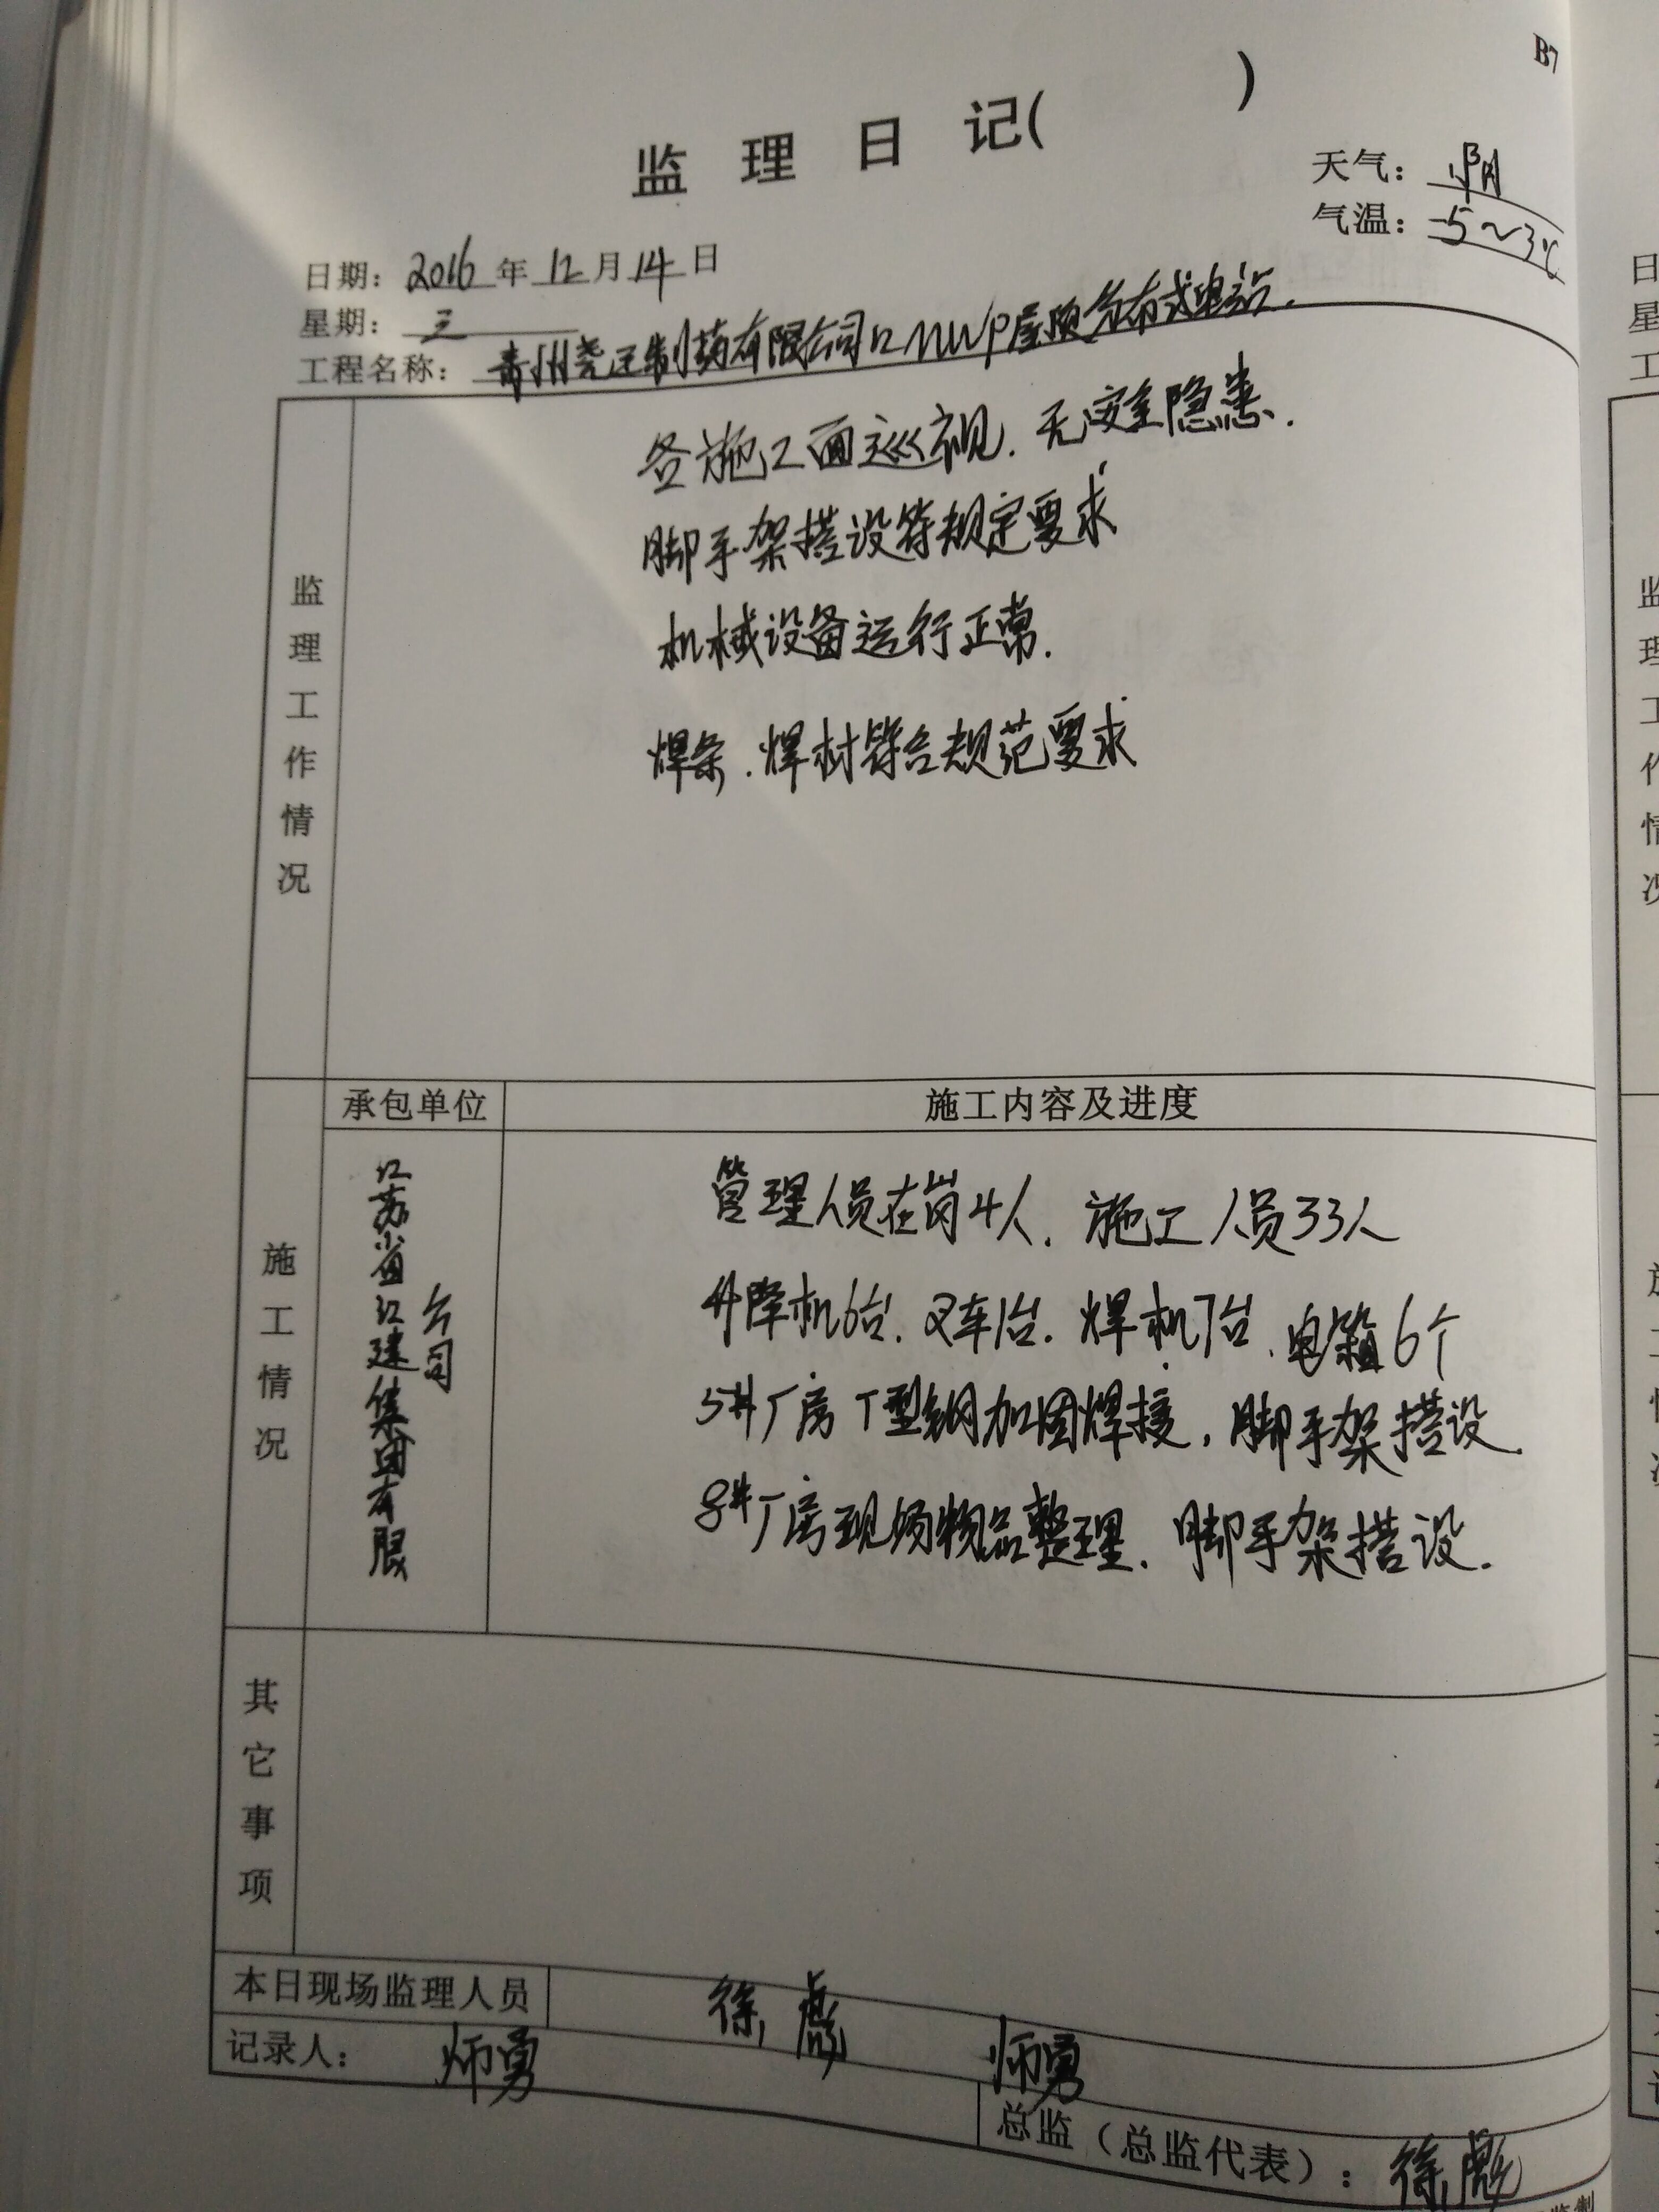 B7
监 理 日 记( )
天气: 阴
气温: -5～3℃
日期: 2016 年 12 月 14 日
星期: 三
工程名称: 青州尧王制药有限公司 屋顶分布式电站.
监理工作情况
各施工面巡视. 无安全隐患.
脚手架搭设符规定要求
机械设备运行正常.
焊条. 焊材符合规范要求
施工情况
承包单位
施工内容及进度
江苏省江建集团有限
公司
管理人员在岗4人. 施工人员33人
升降机6台. 叉车1台. 焊机7台. 电箱6个
5#厂房T型钢加固焊接, 脚手架搭设.
8#厂房现场物品整理. 脚手架搭设.
其它事项
本日现场监理人员 徐彪 师勇
记录人: 师勇
总监(总监代表): 徐彪